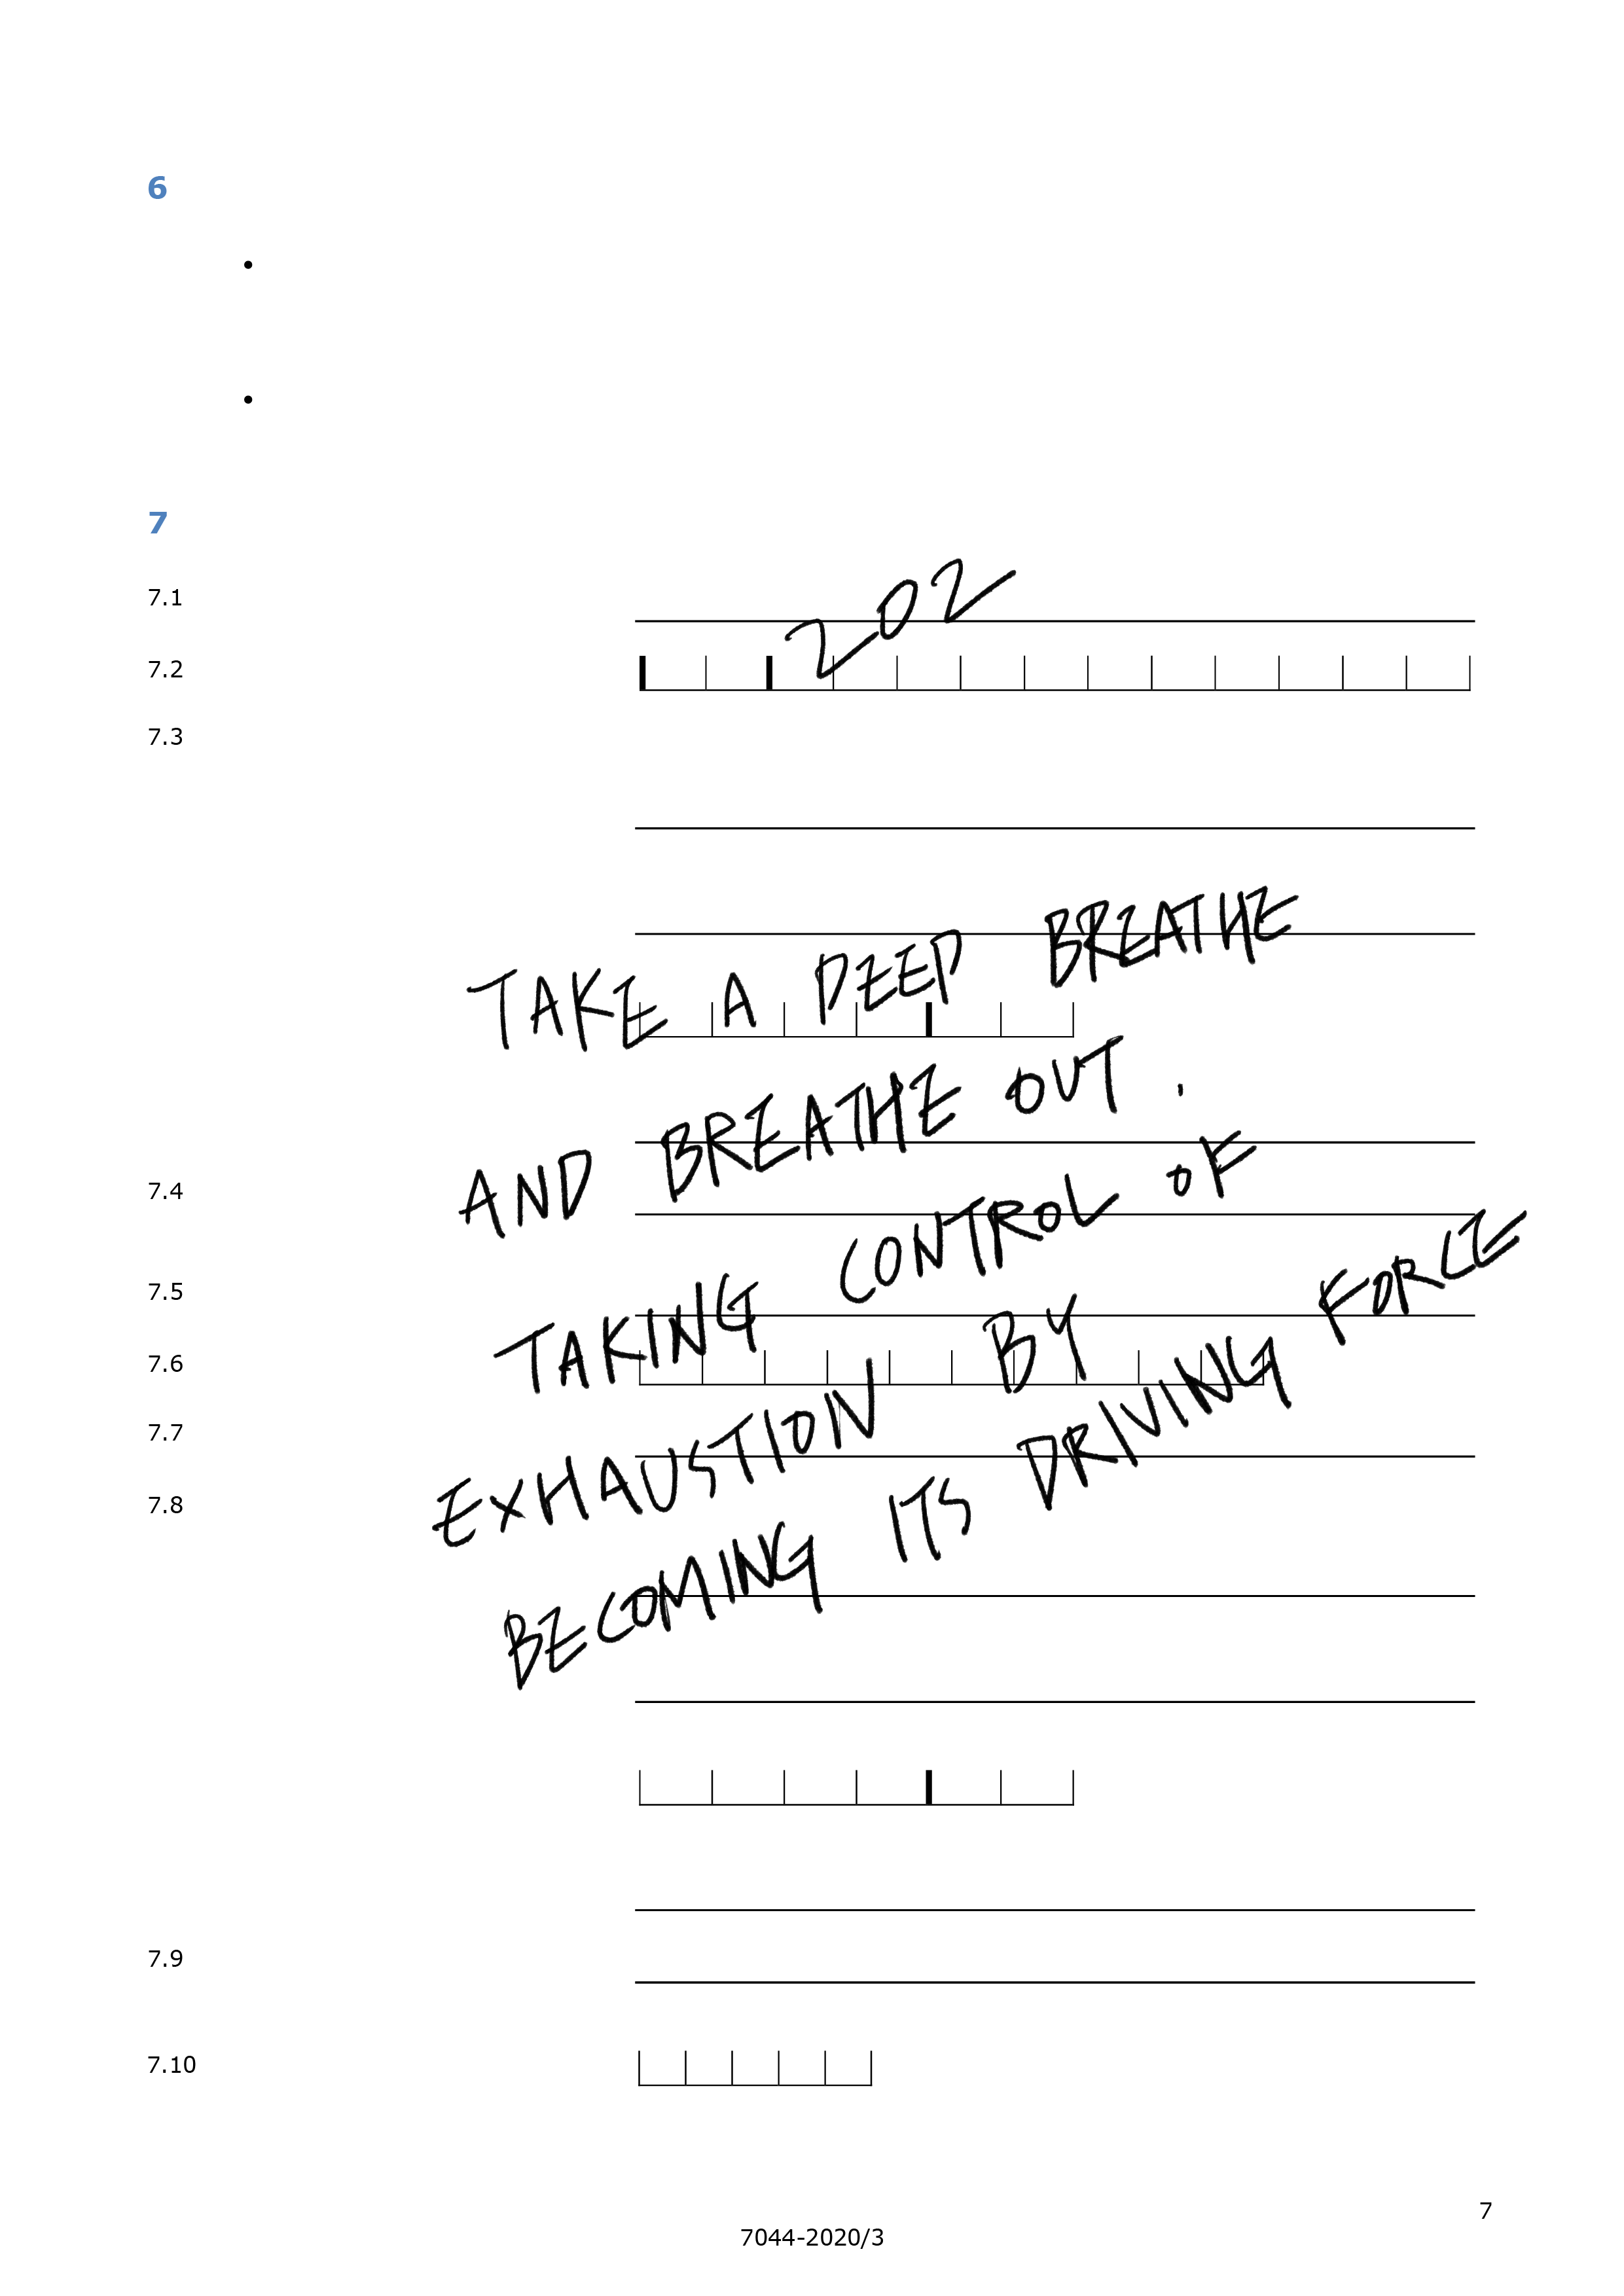 6
•
•
7
202
7.1
7.2
7.3
TAKE A DEEP BREATHE
AND BREATHE OUT.
7.4
TAKING CONTROL OF
7.5
7.6
EXHAUSTION BY
7.7
BECOMING ITS DRIVING FORCE
7.8
7.9
7.10
7
7044-2020/3